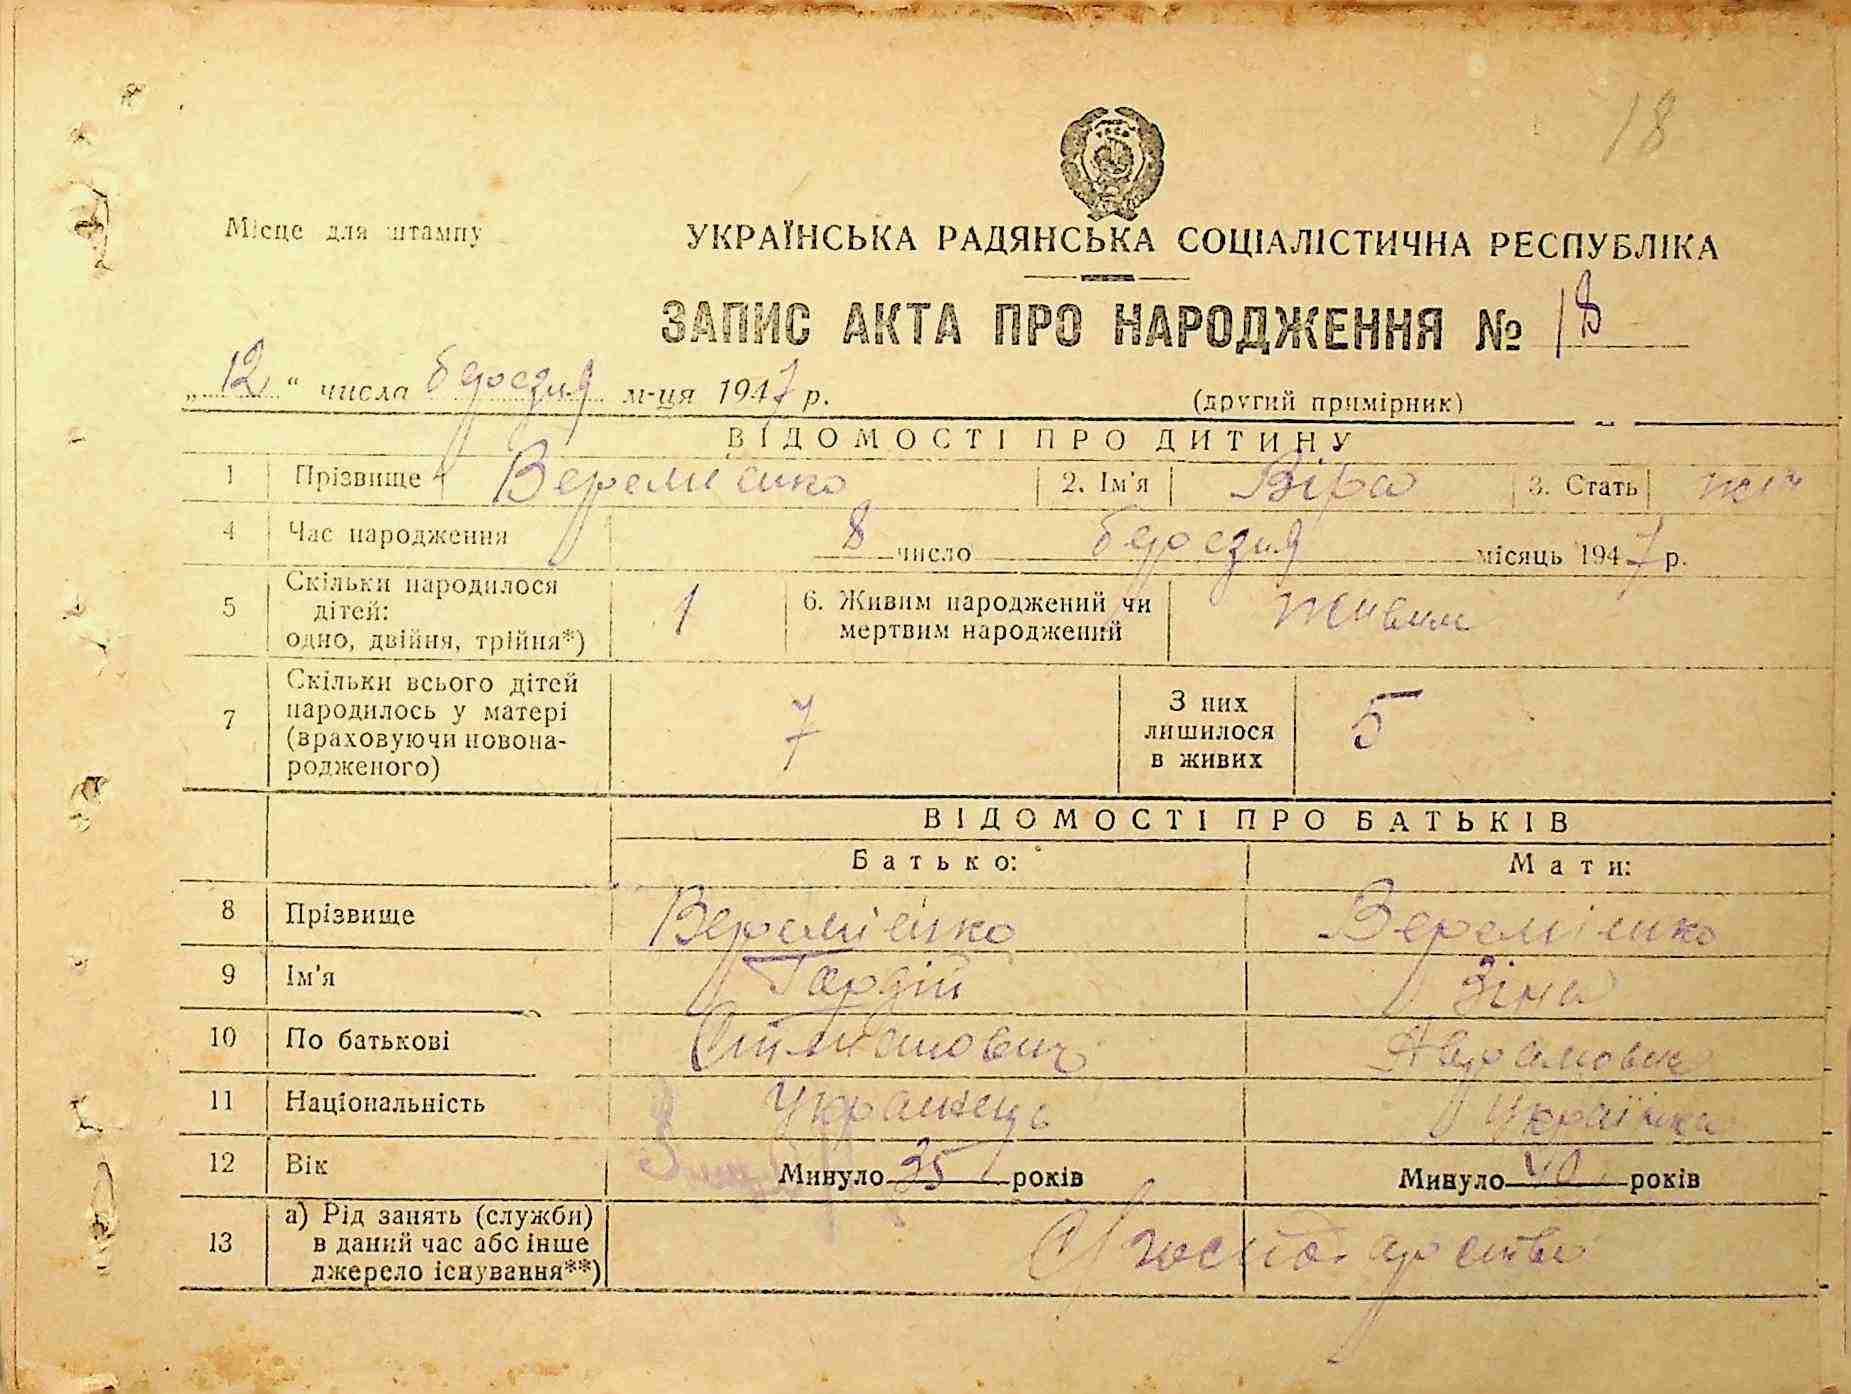 18
Місце для штампу
УКРАЇНСЬКА РАДЯНСЬКА СОЦІАЛІСТИЧНА РЕСПУБЛІКА
ЗАПИС АКТА ПРО НАРОДЖЕННЯ № 18
„12“ числа березня м-ця 1947 р.
(другий примірник)
ВІДОМОСТІ ПРО ДИТИНУ
1 Прізвище Веремієнко 2. Ім'я Віра 3. Стать жін
4 Час народження 8 число березня місяць 1947 р.
5 Скільки народилося дітей: одно, двійня, трійня*) 1 6. Живим народжений чи мертвим народжений Живим
7 Скільки всього дітей народилось у матері (враховуючи новонародженого) 7 З них лишилося в живих 5
ВІДОМОСТІ ПРО БАТЬКІВ
Батько: Мати:
8 Прізвище Веремієнко Веремієнко
9 Ім'я Гордій Зіна
10 По батькові Степанович Аврамовна
11 Національність Українець Українка
12 Вік Минуло 35 років Минуло 40 років
13 а) Рід занять (служби) в даний час або інше джерело існування**) С/господарство